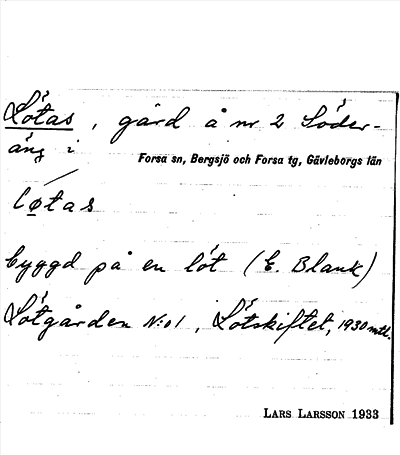 Lötas, gård å nr 2 Söder-
äng i
Forsa sn, Bergsjö och Forsa tg, Gävleborgs län
lø̄tas
byggd på en löt (E. Blank)
Lötgården N:o 1, Lötskiftet, 1930 mtl.
LARS LARSSON 1933